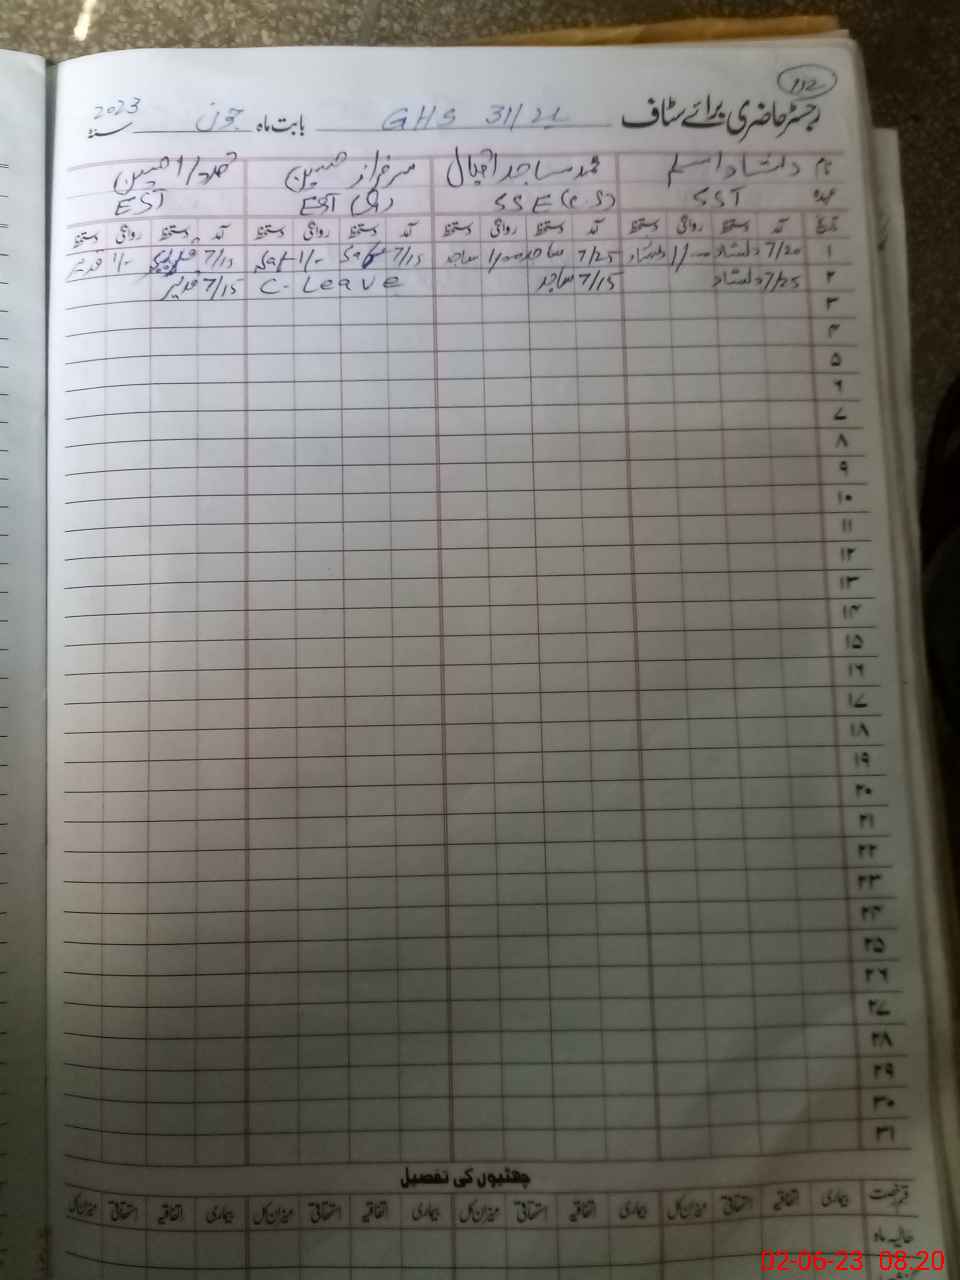 132
رجسٹر حاضری برائے سٹاف GHS 31/2L بابت ماہ جون سنہ 2023
نام دلشاد اسلم محمد ساجد اقبال سرفراز حسین
عہدہ SST SSE (C.S) EST EST
تاریخ آمد دستخط روانگی دستخط آمد دستخط روانگی دستخط آمد دستخط روانگی دستخط آمد دستخط روانگی دستخط
۱ 7/20 دلشاد 1/00 دلشاد 7/25 ساجد 1/00 ساجد 7/15 1/- 7/15 1/-
۲ 7/25 دلشاد 7/15 ساجد C-Leave 7/15
۳
۴
۵
۶
۷
۸
۹
۱۰
۱۱
۱۲
۱۳
۱۴
۱۵
۱۶
۱۷
۱۸
۱۹
۲۰
۲۱
۲۲
۲۳
۲۴
۲۵
۲۶
۲۷
۲۸
۲۹
۳۰
۳۱
چھٹیوں کی تفصیل
قسم رخصت بیماری اتفاقیہ استحقاقی میزان کل بیماری اتفاقیہ استحقاقی میزان کل بیماری اتفاقیہ استحقاقی میزان کل بیماری اتفاقیہ استحقاقی میزان کل
حالیہ ماہ
02-06-23 08:20